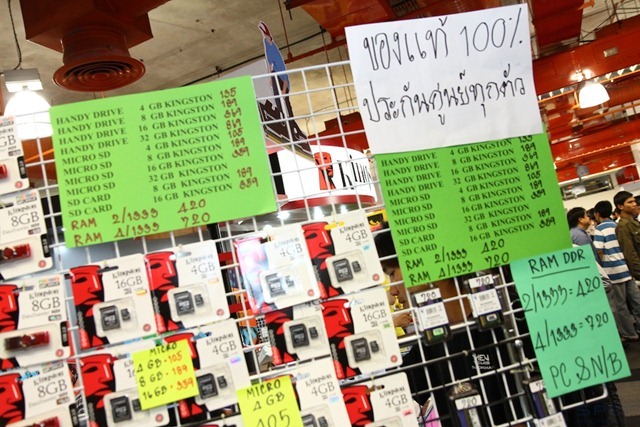 ของแท้ 100%
ประกันศูนย์ทุกตัว
HANDY DRIVE 4 GB KINGSTON 135
HANDY DRIVE 8 GB KINGSTON 189
HANDY DRIVE 16 GB KINGSTON 369
HANDY DRIVE 32 GB KINGSTON 869
MICRO SD 4 GB KINGSTON 105
MICRO SD 8 GB KINGSTON 189
MICRO SD 16 GB KINGSTON 339
MICRO SD 32 GB KINGSTON
SD CARD 8 GB KINGSTON 189
SD CARD 16 GB KINGSTON 359
RAM 2/1333 420
RAM 4/1333 720
HANDY DRIVE 4 GB KINGSTON 135
HANDY DRIVE 8 GB KINGSTON 189
HANDY DRIVE 16 GB KINGSTON 369
HANDY DRIVE 32 GB KINGSTON 869
MICRO SD 4 GB KINGSTON 105
MICRO SD 8 GB KINGSTON 189
MICRO SD 16 GB KINGSTON 339
MICRO SD 32 GB KINGSTON
SD CARD 8 GB KINGSTON 189
SD CARD 16 GB KINGSTON 359
RAM 2/1333 420
RAM 4/1333 720
RAM DDR
2/1333 = 420
4/1333 = 720
PC & N/B
MICRO SD
4 GB - 105
8 GB - 189
16 GB - 339
MICRO
4 GB
105
Kingston
8GB
Kingston
8GB
Kingston
8GB
Kingston
16GB
Kingston
4GB
Kingston
4GB
Kingston
4GB
Kingston
4GB